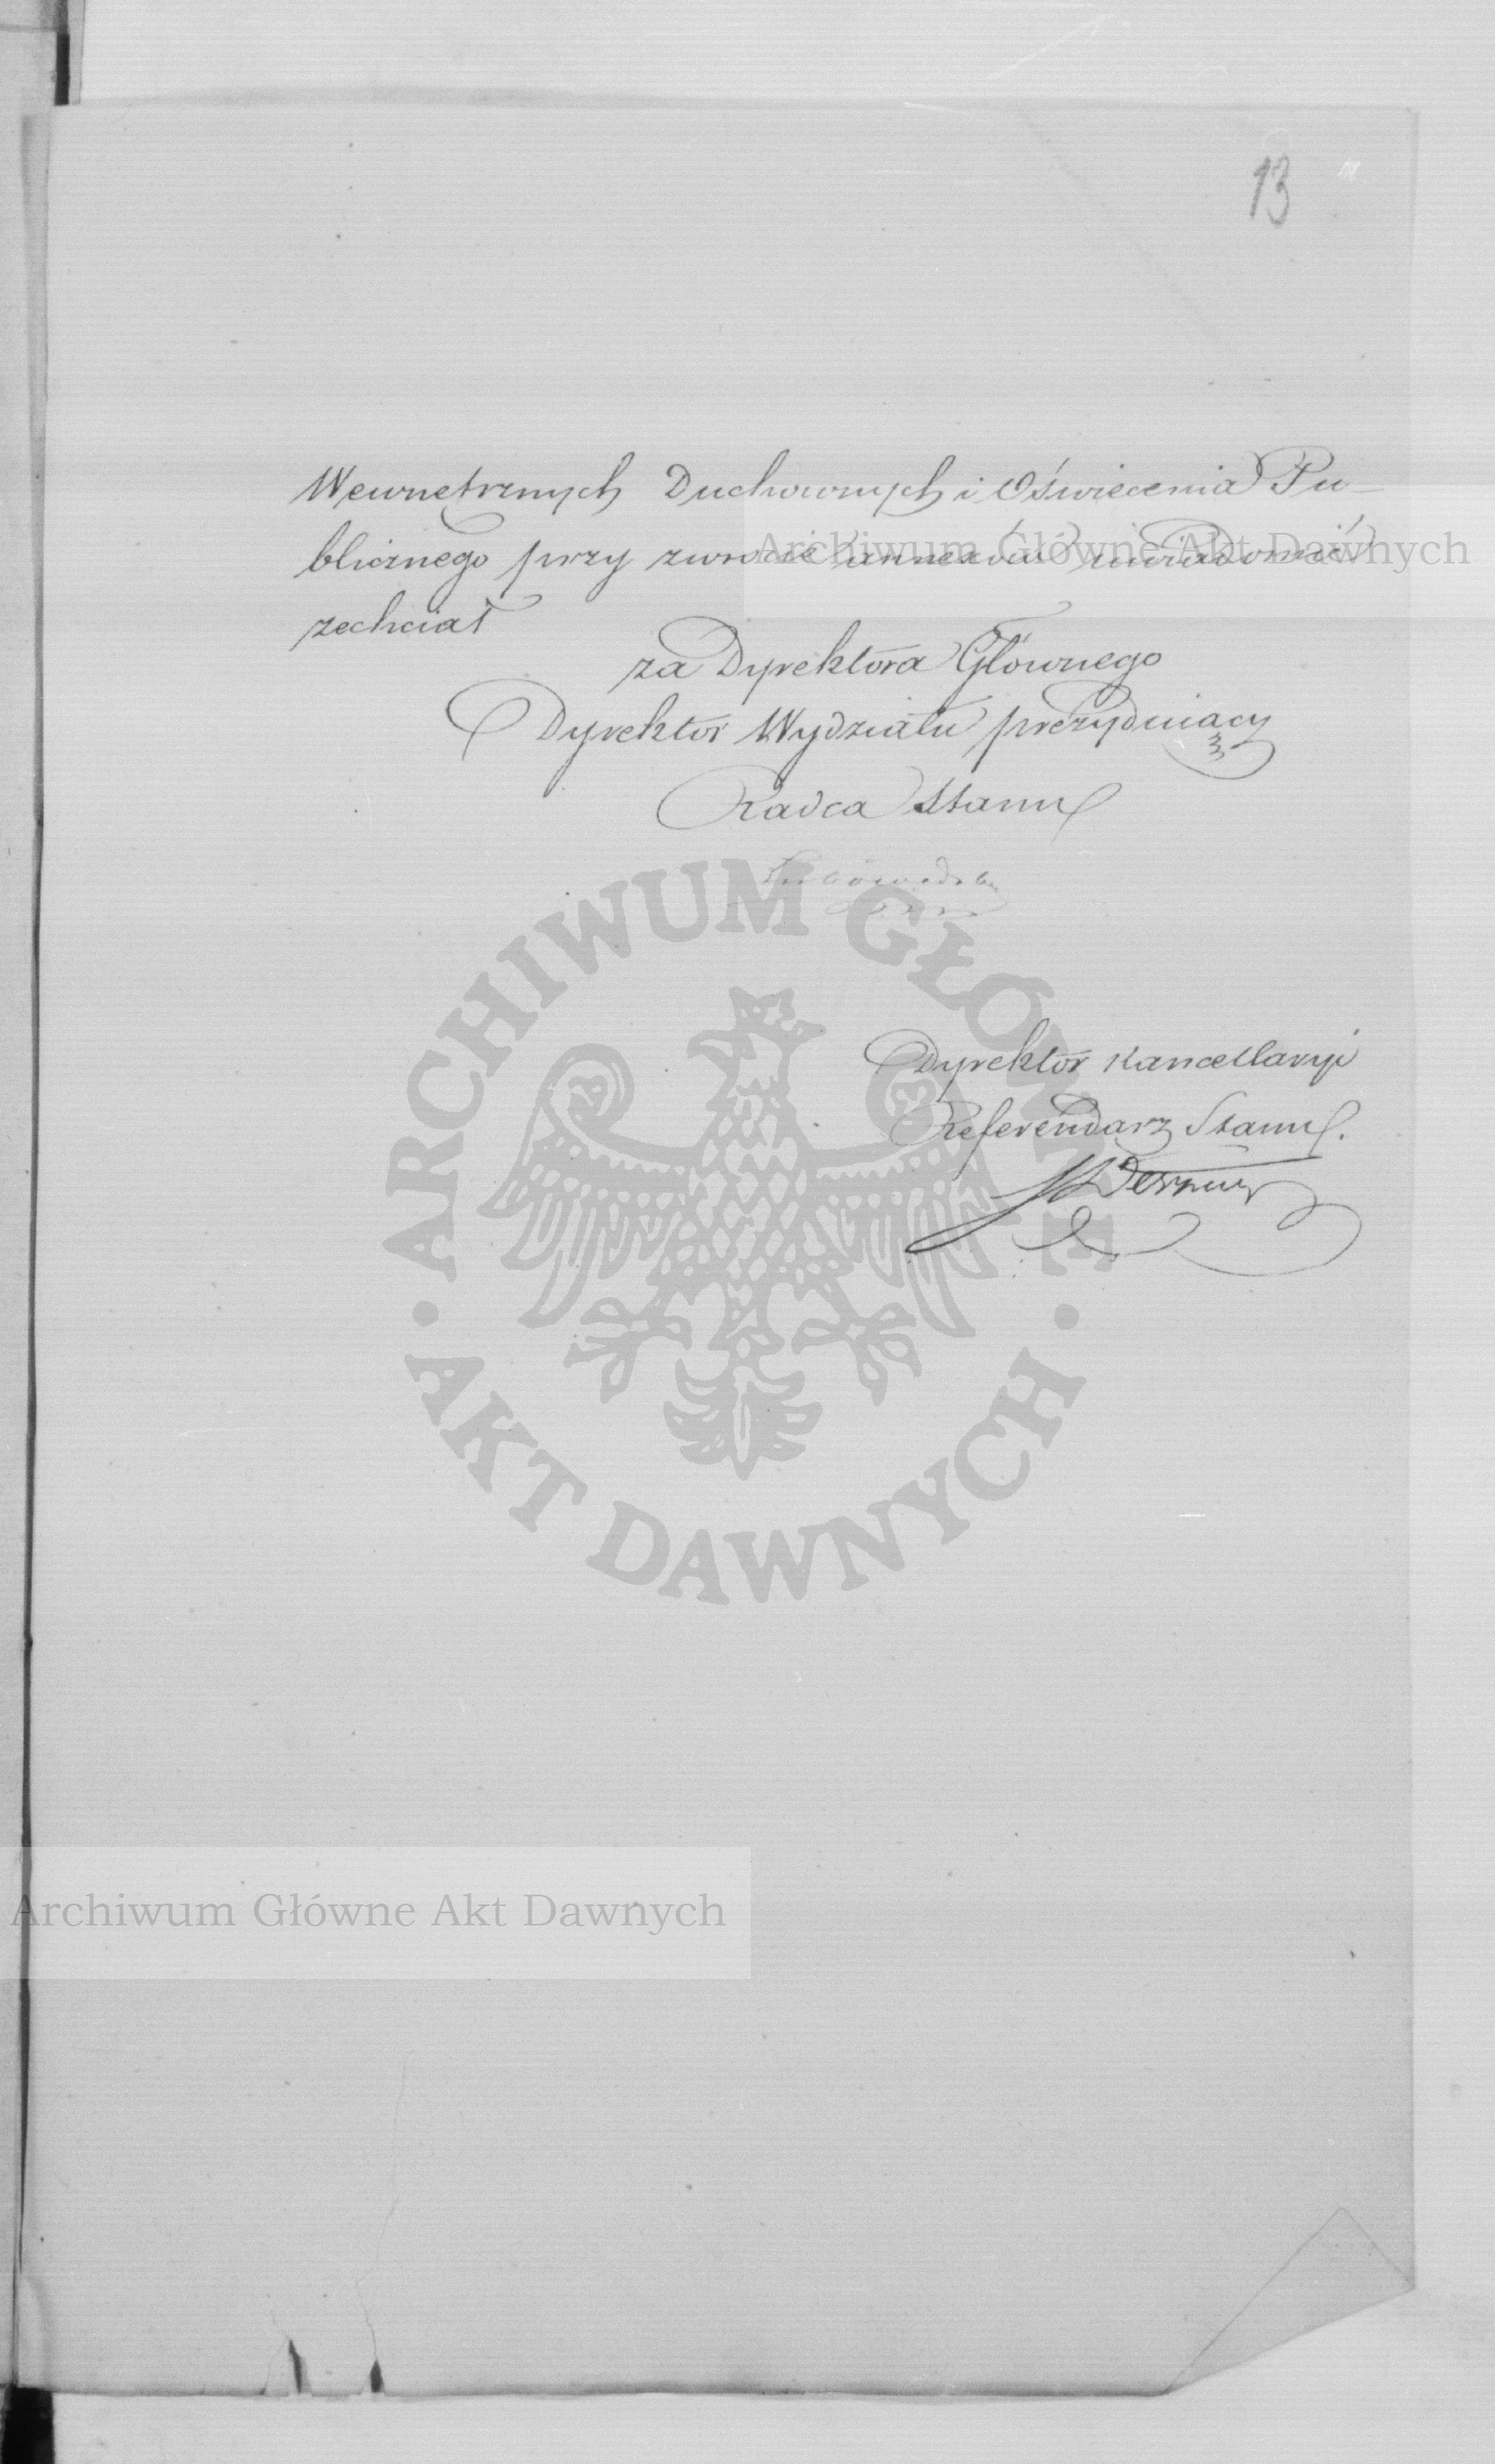 13
Wewnętrznych Duchownych i Oświecenia Pu-
blicznego przy zwrocie annexów uwiadomić
zechciał
za Dyrektora Głównego
Dyrektor Wydziału prezydujący
Radca Stanu
Dyrektor Kancellaryi
Referendarz Stanu.
ARCHIWUM GŁÓWNE
AKT DAWNYCH
Archiwum Główne Akt Dawnych
Archiwum Główne Akt Dawnych